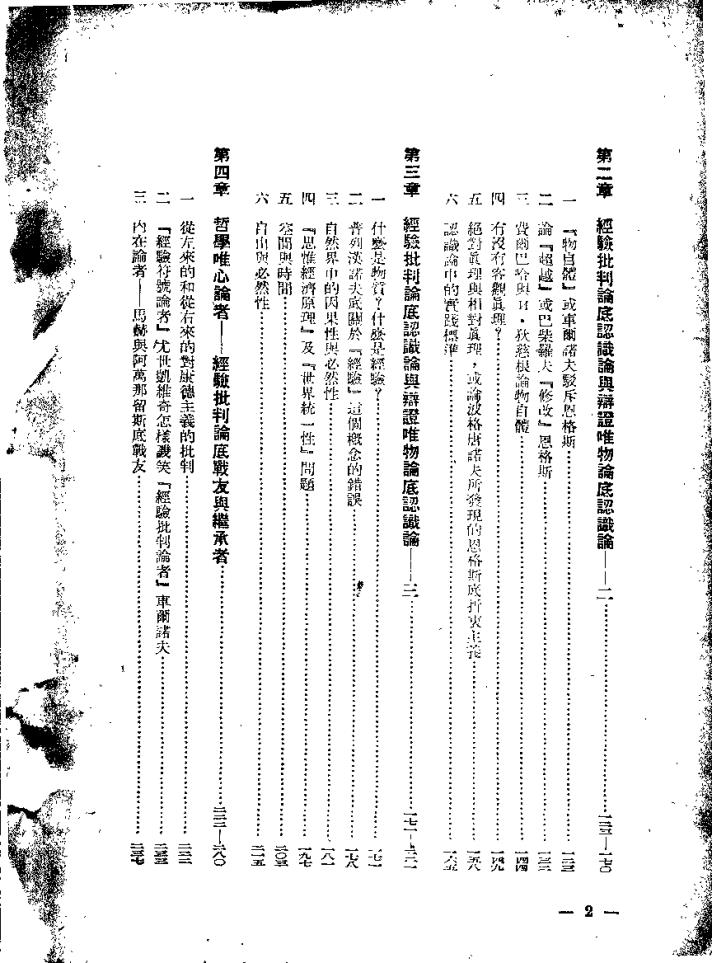 第二章 經驗批判論底認識論與辯證唯物論底認識論——二……一二三—一七〇
一 『物自體』或車爾諾夫駁斥恩格斯……一二三
二 論『超越』或巴柴羅夫『修改』恩格斯……一三三
三 費爾巴哈與H·狄慈根論物自體……一四四
四 有沒有客觀眞理？……一四九
五 絕對眞理與相對眞理，或論波格唐諾夫所發現的恩格斯底折衷主義……一五八
六 認識論中的實踐標準……一六五
第三章 經驗批判論底認識論與辯證唯物論底認識論——三……一七一—
一 什麼是物質？什麼是經驗？……一七一
二 普列漢諾夫底關於『經驗』這個概念的錯誤……一七八
三 自然界中的因果性與必然性……一八一
四 『思惟經濟原理』及『世界統一性』問題……一九七
五 空間與時間……二〇五
六 自由與必然性……二一五
第四章 哲學唯心論者——經驗批判論底戰友與繼承者……二二二—二八〇
一 從左來的和從右來的對康德主義的批判……二二二
二 『經驗符號論者』尤世凱維奇怎樣譏笑『經驗批判論者』車爾諾夫……二三三
三 內在論者——馬赫與阿萬那留斯底戰友……二三七
— 2 —